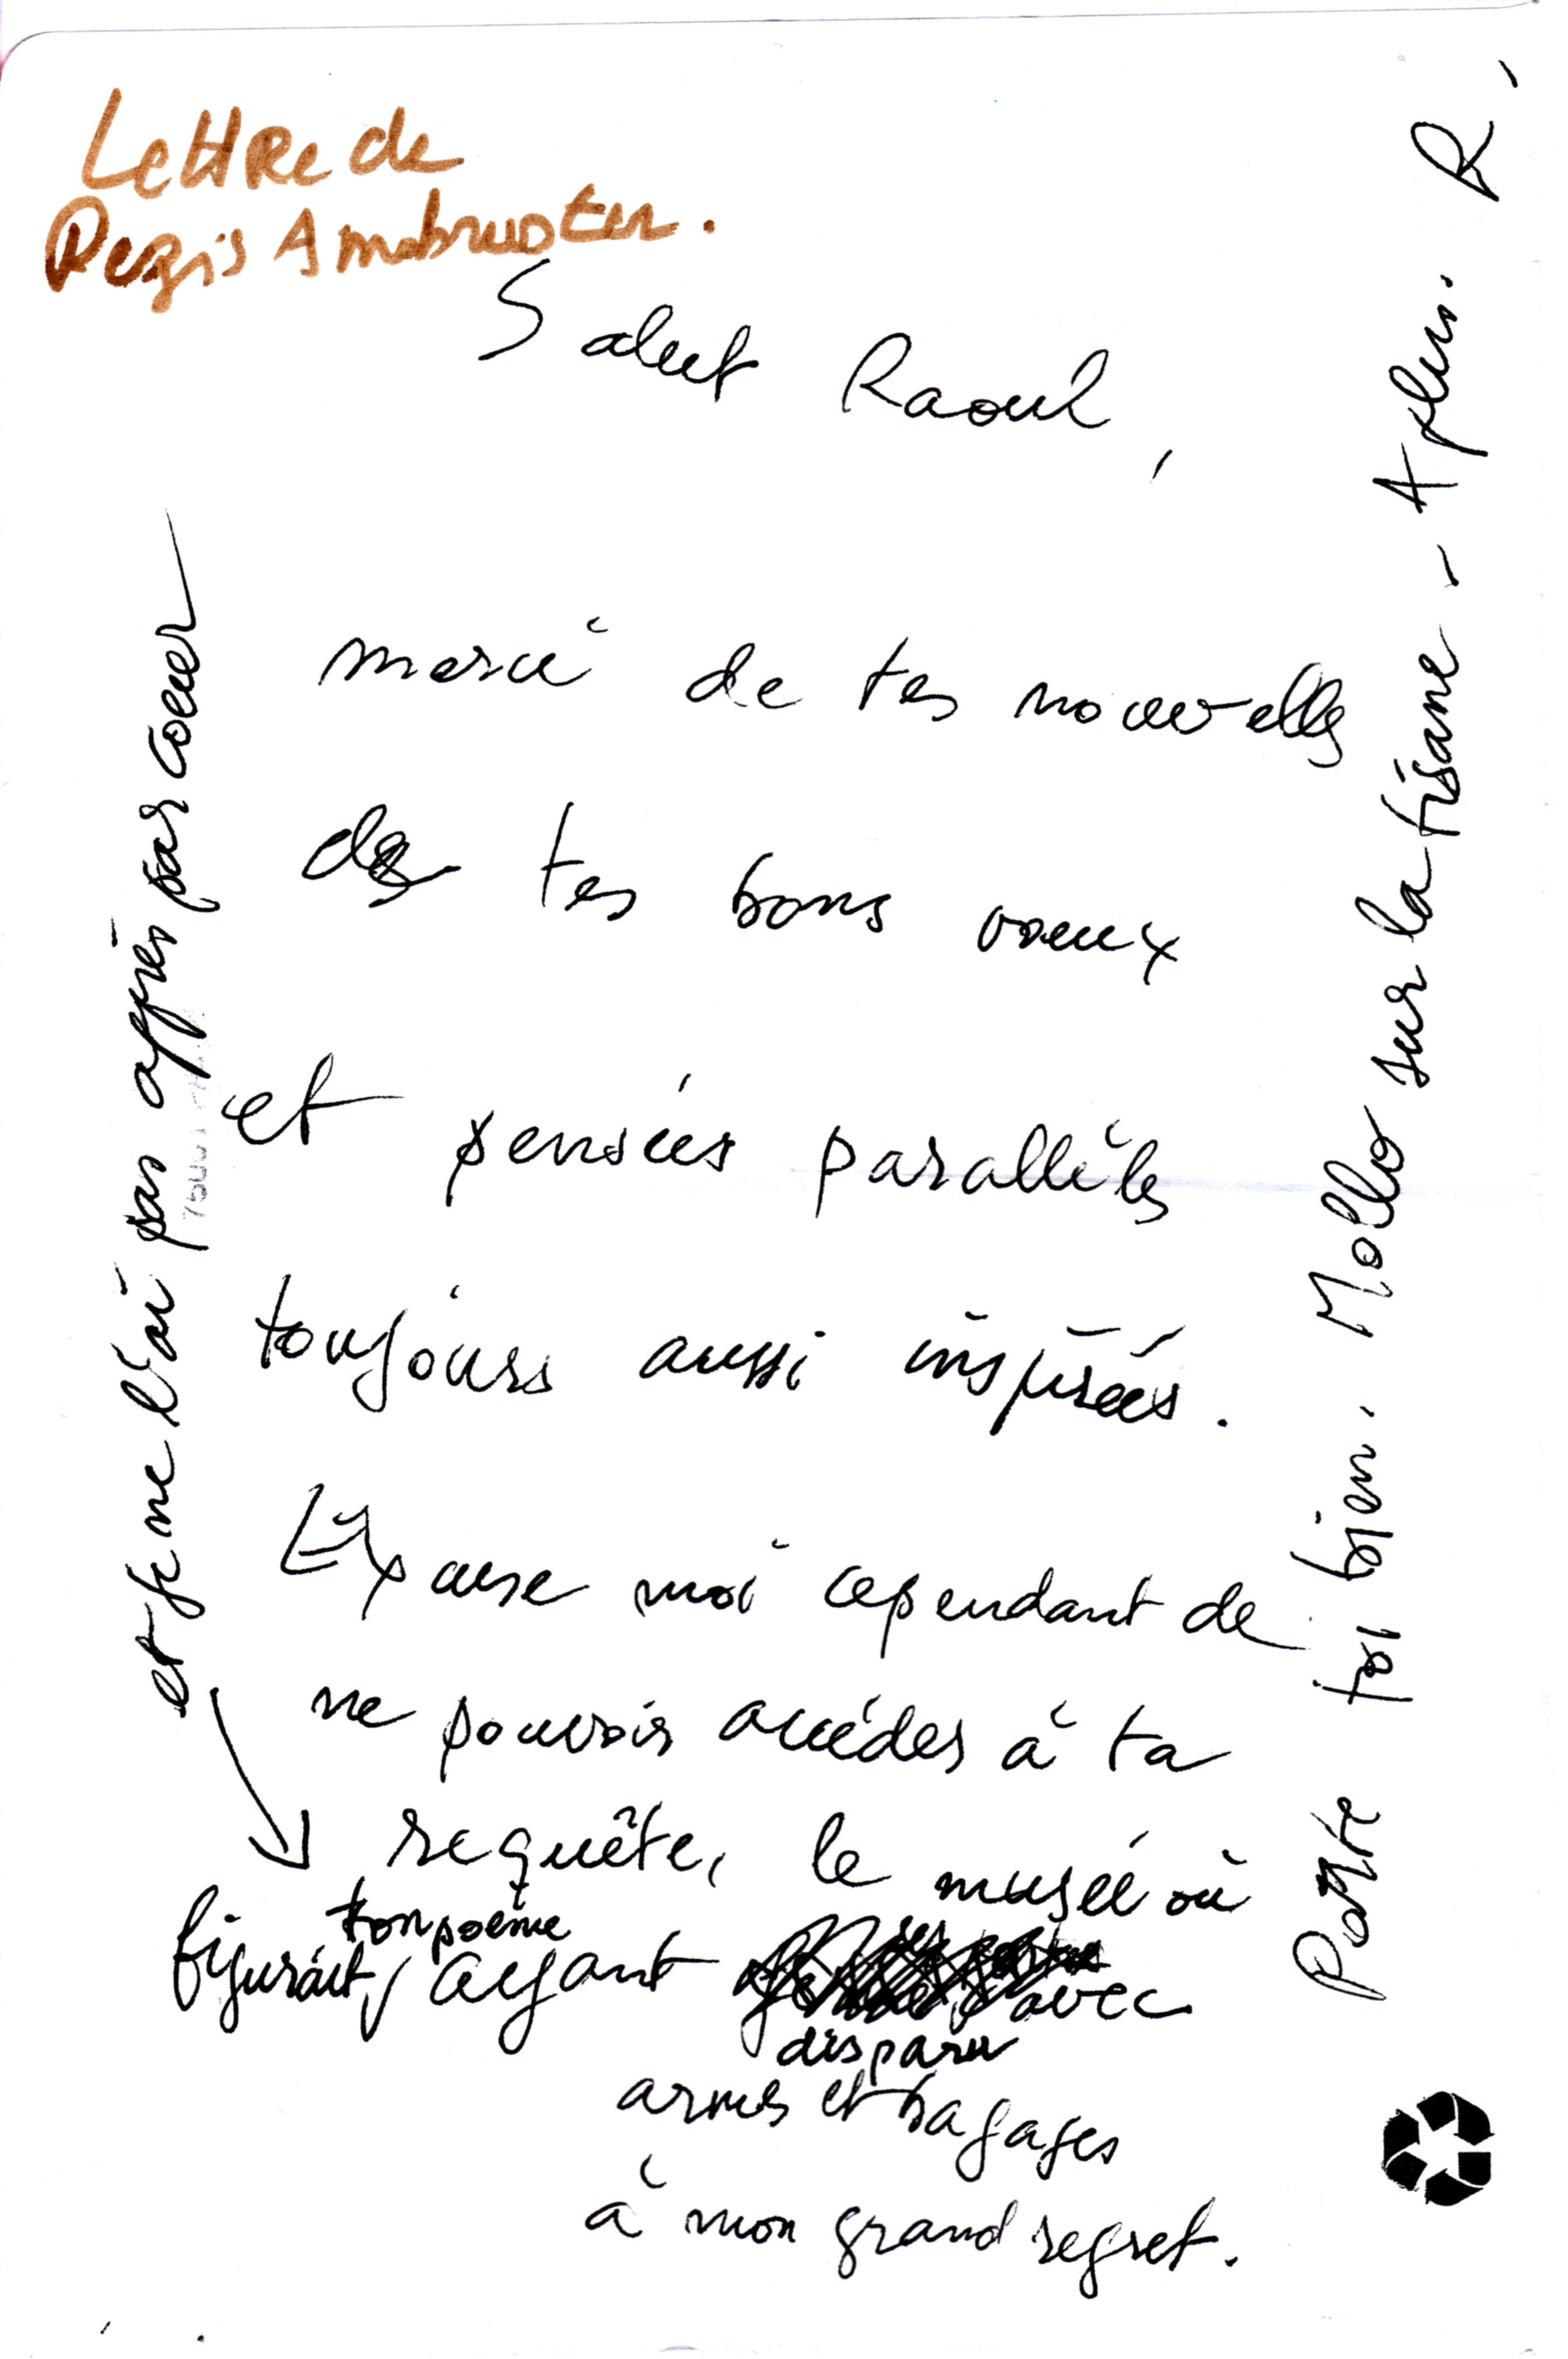 Lettre de
Regis Ambruster.
Salut Raoul,
merci de tes nouvelles
de tes bons voeux
et pensées parallèles
toujours aussi inspirées.
Excuse moi cependant de
ne pouvoir accéder à ta
requête, le musée où
ton poème
figurait, ayant avec
disparu
armes et bagages
à mon grand regret.
et je ne l'ai pas appris par coeur
Porte toi bien. Mollo sur la tisane - A plus. R.